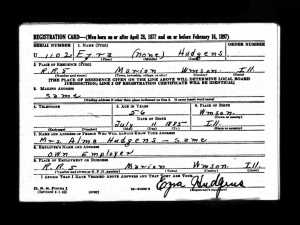 REGISTRATION CARD—(Men born on or after April 28, 1877 and on or before February 16, 1897)
SERIAL NUMBER 1. NAME (Print) ORDER NUMBER
U 1102 Ezra (none) Hudgens
(First) (Middle) (Last)
2. PLACE OF RESIDENCE (Print)
R.R.5 Marion Wmson Ill
(Number and street) (Town, township, village, or city) (County) (State)
[THE PLACE OF RESIDENCE GIVEN ON THE LINE ABOVE WILL DETERMINE LOCAL BOARD
JURISDICTION; LINE 2 OF REGISTRATION CERTIFICATE WILL BE IDENTICAL]
3. MAILING ADDRESS
Same
[Mailing address if other than place indicated on line 2. If same insert word same]
4. TELEPHONE 5. AGE IN YEARS 6. PLACE OF BIRTH
56 Wmson
DATE OF BIRTH (Town or county)
July 1885 Ill
(Mo.) (Day) (Yr.) (State or country)
7. NAME AND ADDRESS OF PERSON WHO WILL ALWAYS KNOW YOUR ADDRESS
Mrs. Alma Hudgens - Same
8. EMPLOYER'S NAME AND ADDRESS
Own Employer
9. PLACE OF EMPLOYMENT OR BUSINESS
R.R.5 Marion Wmson Ill.
(Number and street or R. F. D. number) (Town) (County) (State)
I AFFIRM THAT I HAVE VERIFIED ABOVE ANSWERS AND THAT THEY ARE TRUE.
D. S. S. Form 1
(Revised 4-1-42) (over)
Ezra Hudgens